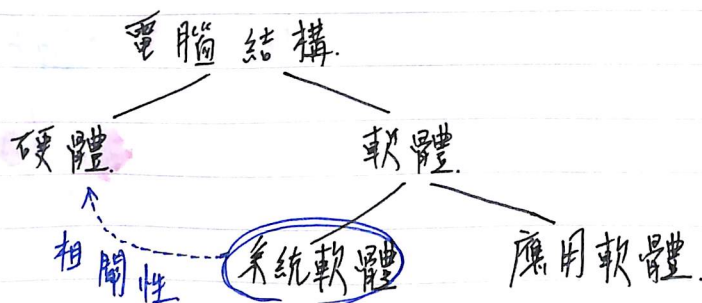 電腦結構.
硬體. 軟體.
相關性 系統軟體 應用軟體.